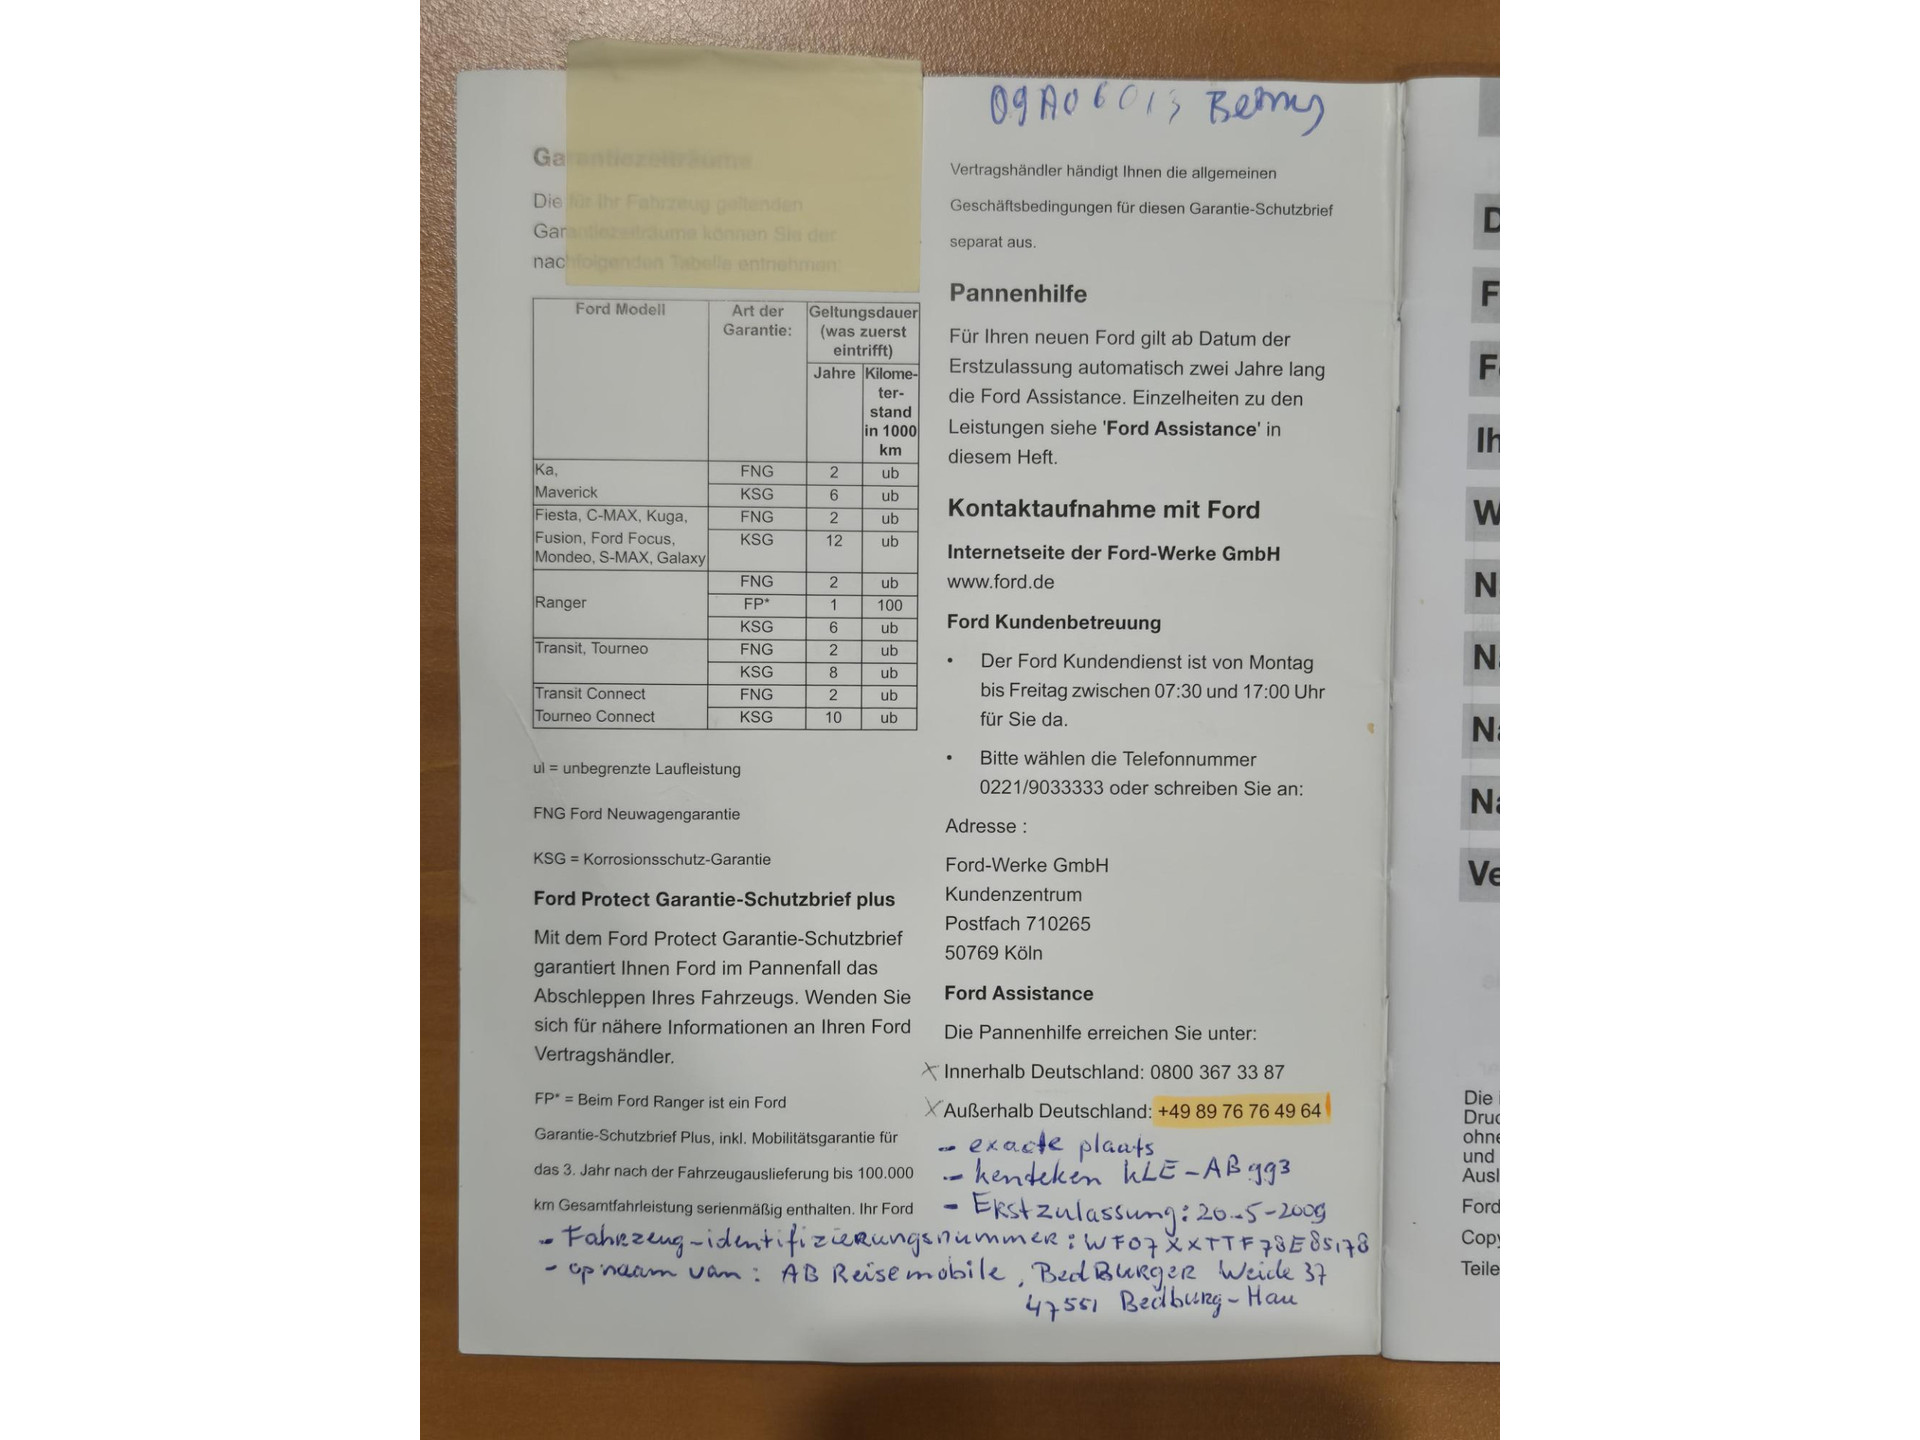 09A06013
Garantiezeiträume
Die für Ihr Fahrzeug geltenden
Garantiezeiträume können Sie der
nachfolgenden Tabelle entnehmen:
Ford Modell Art der Garantie: Geltungsdauer (was zuerst eintrifft)
Jahre Kilome-
ter-
stand
in 1000
km
Ka, FNG 2 ub
Maverick KSG 6 ub
Fiesta, C-MAX, Kuga, FNG 2 ub
Fusion, Ford Focus, KSG 12 ub
Mondeo, S-MAX, Galaxy
FNG 2 ub
Ranger FP* 1 100
KSG 6 ub
Transit, Tourneo FNG 2 ub
KSG 8 ub
Transit Connect FNG 2 ub
Tourneo Connect KSG 10 ub
ul = unbegrenzte Laufleistung
FNG Ford Neuwagengarantie
KSG = Korrosionsschutz-Garantie
Ford Protect Garantie-Schutzbrief plus
Mit dem Ford Protect Garantie-Schutzbrief
garantiert Ihnen Ford im Pannenfall das
Abschleppen Ihres Fahrzeugs. Wenden Sie
sich für nähere Informationen an Ihren Ford
Vertragshändler.
FP* = Beim Ford Ranger ist ein Ford
Garantie-Schutzbrief Plus, inkl. Mobilitätsgarantie für
das 3. Jahr nach der Fahrzeugauslieferung bis 100.000
km Gesamtfahrleistung serienmäßig enthalten. Ihr Ford
Vertragshändler händigt Ihnen die allgemeinen
Geschäftsbedingungen für diesen Garantie-Schutzbrief
separat aus.
Pannenhilfe
Für Ihren neuen Ford gilt ab Datum der
Erstzulassung automatisch zwei Jahre lang
die Ford Assistance. Einzelheiten zu den
Leistungen siehe 'Ford Assistance' in
diesem Heft.
Kontaktaufnahme mit Ford
Internetseite der Ford-Werke GmbH
www.ford.de
Ford Kundenbetreuung
• Der Ford Kundendienst ist von Montag
bis Freitag zwischen 07:30 und 17:00 Uhr
für Sie da.
• Bitte wählen die Telefonnummer
0221/9033333 oder schreiben Sie an:
Adresse :
Ford-Werke GmbH
Kundenzentrum
Postfach 710265
50769 Köln
Ford Assistance
Die Pannenhilfe erreichen Sie unter:
x Innerhalb Deutschland: 0800 367 33 87
x Außerhalb Deutschland: +49 89 76 76 49 64
- exacte plaats
- kenteken KLE-AB 993
- Erstzulassung: 20-5-2009
- Fahrzeug-identifizierungsnummer: WF07XXTTF78E85178
- op naam van: AB Reisemobile, BedBurger Weide 37
47551 Bedburg-Hau
Die
Druc
ohne
und
Ausl
Ford
Copy
Teile